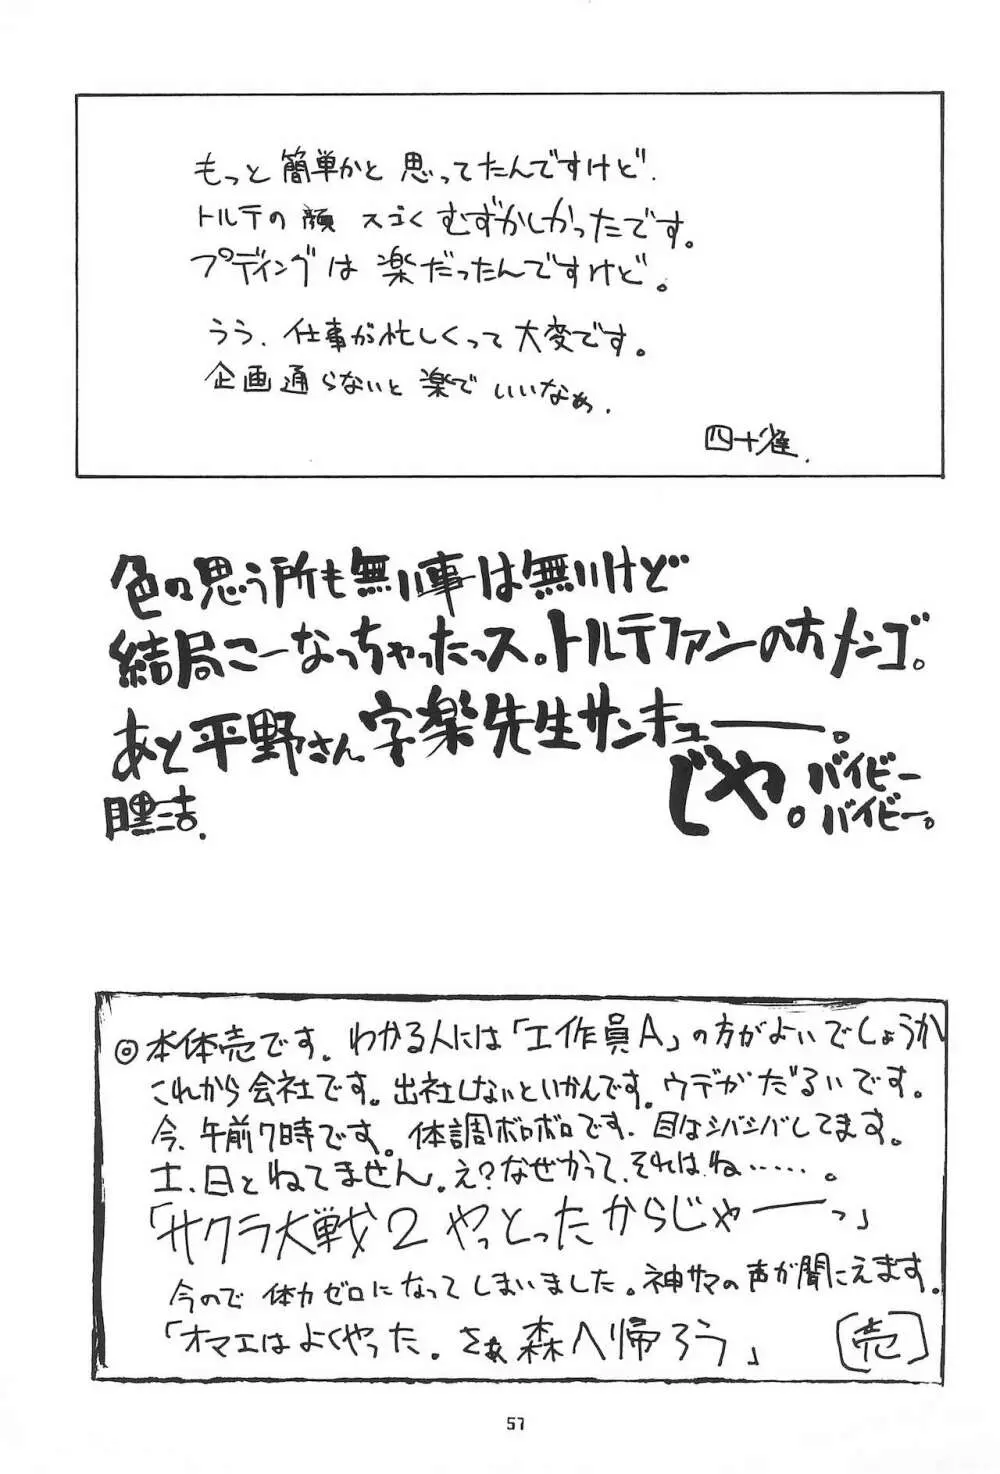 もっと簡単かと思ってたんですけど.
トルテの顔 スゴくむずかしかったです。
プディングは楽だったんですけど。
うう、仕事が忙しくって大変です。
企画通らないと楽でいいなぁ.
四十雀.
色々思う所も無い事は無いけど
結局こーなっちゃったっス。トルテファンの方メンゴ。
あと平野さん字楽先生サンキュー――。
じゃ。バイビー
バイビー。
◎本体売です。わかる人には「工作員A」の方がよいでしょうか
これから会社です。出社しないといかんです。ウデがだるいです。
今、午前7時です。体調ボロボロです。目はシバシバしてます。
土、日とねてません。え?なぜかって、それは、ね……。
「サクラ大戦2やっとったからじゃーっ」
今ので体力ゼロになってしまいました。神サマの声が聞こえます。
「オマエはよくやった。さぁ森へ帰ろう」
〔売〕
57